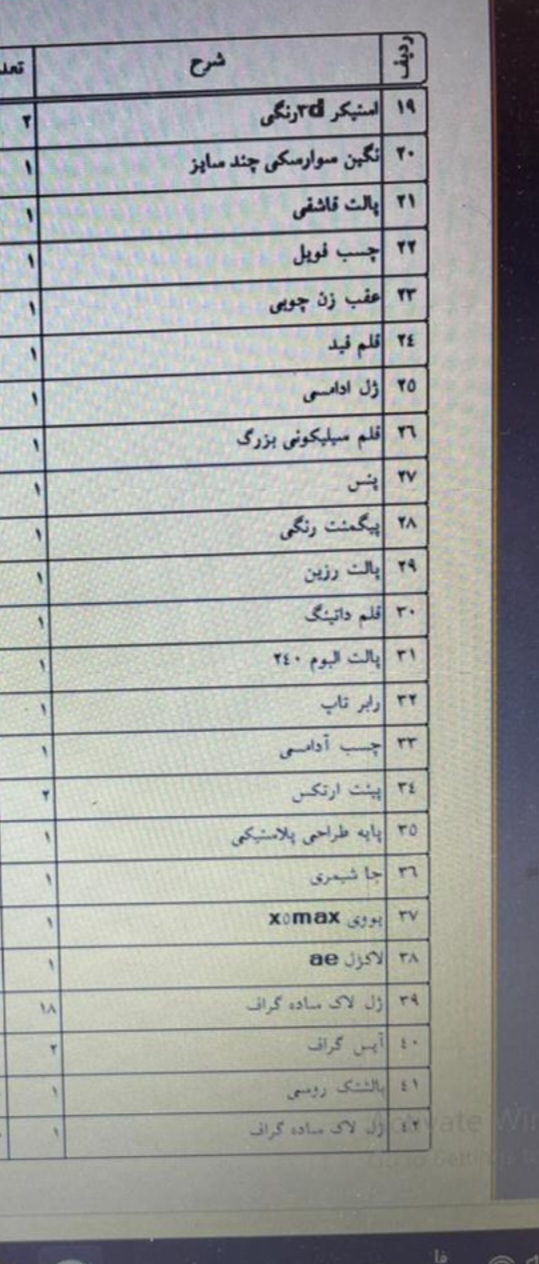 ردیف شرح تعد
۱۹ استیکر rdرنگی ۲
۲۰ نگین سوارسکی چند سایز ۱
۲۱ پالت قاشقی ۱
۲۲ چسب فویل ۱
۲۳ عقب زن چوبی ۱
۲٤ قلم فید ۱
۲٥ ژل ادامسی ۱
۲٦ قلم سیلیکونی بزرگ ۱
۲۷ پنس ۱
۲۸ پیگمنت رنگی ۱
۲۹ پالت رزین ۱
۳۰ قلم داتینگ ۱
۳۱ پالت البوم ۲٤۰ ۱
۳۲ رابر تاپ ۱
۳۳ چسب آدامسی ۱
۳٤ پینت ارتکس ۲
۳٥ پایه طراحی پلاستیکی ۱
۳٦ جا شیمری ۱
۳۷ یووی x٥max ۱
۳۸ لاکژل ae ۱
۳۹ ژل لاک ساده گراف ۱۸
٤۰ آیس گراف ۲
٤۱ بالشتک روسی ۱
٤۲ ژل لاک ساده گراف ۱
Activate Win
فا